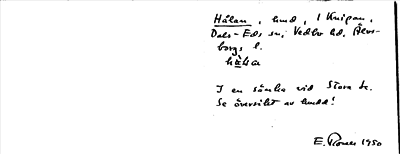 Hålan, hmd, i Knipan,
Dals-Eds sn, Vedbo hd, Älvs-
borgs l.
I en sänka vid Stora Le.
Se översikt av hmdd!
E. 1950